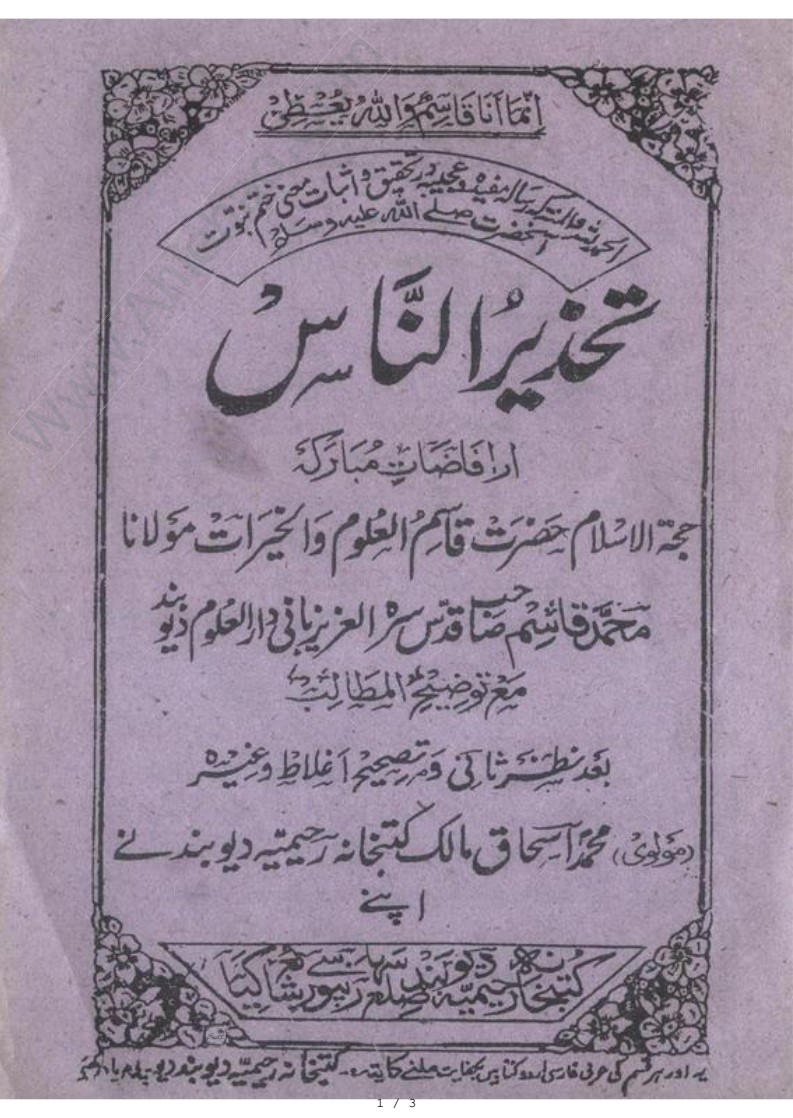 انما انا قاسم والله يعطی
الحمد للہ والمنۃ کہ رسالہ مفیدہ وعجیبہ در تحقیق واثبات معنی ختم نبوت
آنحضرت صلے اللہ علیہ وسلم
تحذیرُ النَّاسْ
از افاضات مبارکہ
حجۃ الاسلام حضرت قاسم العلوم والخیرات مولانا
محمد قاسم صاحب قدس سرہ العزیز بانی دارالعلوم دیوبند
مع توضیح المطالب
بعد نظر ثانی و تصحیح اغلاط وغیرہ
(مولوی) محمد اسحاق مالک کتبخانہ رحیمیہ دیوبند نے
اپنے
کتبخانہ رحیمیہ دیوبند ضلع سہارنپور سے شائع کیا
یہ اور ہر قسم کی عربی فارسی اردو کتابیں بکفایت ملنے کا پتہ:۔ کتبخانہ رحیمیہ دیوبند
1 / 3